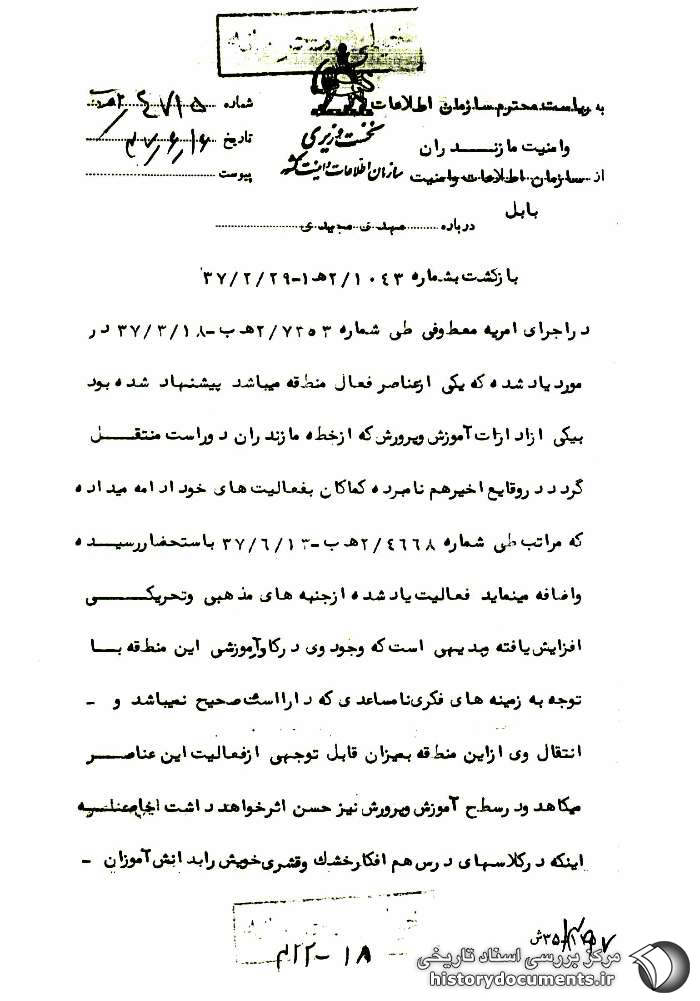 خیلی محرمانه
به ریاست محترم سازمان اطلاعات
وامنیت مازنـــدران
از سازمان اطلاعات وامنیت
بابل
نخست وزیری
سازمان اطلاعات و امنیت کشور
شماره
تاریخ ۳۷/۶/۱۶
پیوست
درباره مهدی مجیدی
بازگشت بشماره ۲/۱۰۴۳ ه‍ ۱-۳۷/۲/۲۹
دراجرای امریه معطوفی طی شماره ۲/۷۲۵۳ ه‍ ب-۳۷/۳/۱۸ در
مورد یاد شده که یکی ازعناصر فعال منطقه میباشد پیشنهاد شده بود
بیکی ازادارات آموزش وپرورش که ازخطه مازندران دوراست منتقـــل
گردد دروقایع اخیرهم نامبرده کماکان بفعالیت های خود ادامه میداده
که مراتب طی شماره ۲/۴۶۶۸ ه‍ ب-۳۷/۶/۱۳ باستحضاررسیـــده
واضافه مینماید فعالیت یاد شده ازجنبه های مذهبی وتحریکـــی
افزایش یافته وبدیهی است که وجود وی درکادرآموزشی این منطقه بـــا
توجه به زمینه های فکری نامساعدی که دارااست صحیح نمیباشد و -
انتقال وی ازاین منطقه بمیزان قابل توجهی ازفعالیت این عناصـــر
میکاهد ودرسطح آموزش وپرورش نیز حسن اثرخواهد داشت
اینکه درکلاسهای درس هم افکارخشك وقشری خویش رابدانش آموزان -
۱۸-۲۲م
۳۵ش
مرکز بررسی اسناد تاریخی
historydocuments.ir